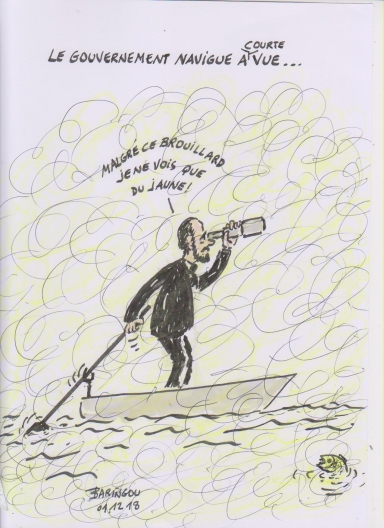 LE GOUVERNEMENT NAVIGUE À COURTE VUE...
MALGRÉ CE BROUILLARD
JE NE VOIS QUE
DU JAUNE!
BARINGOU
01.12.18